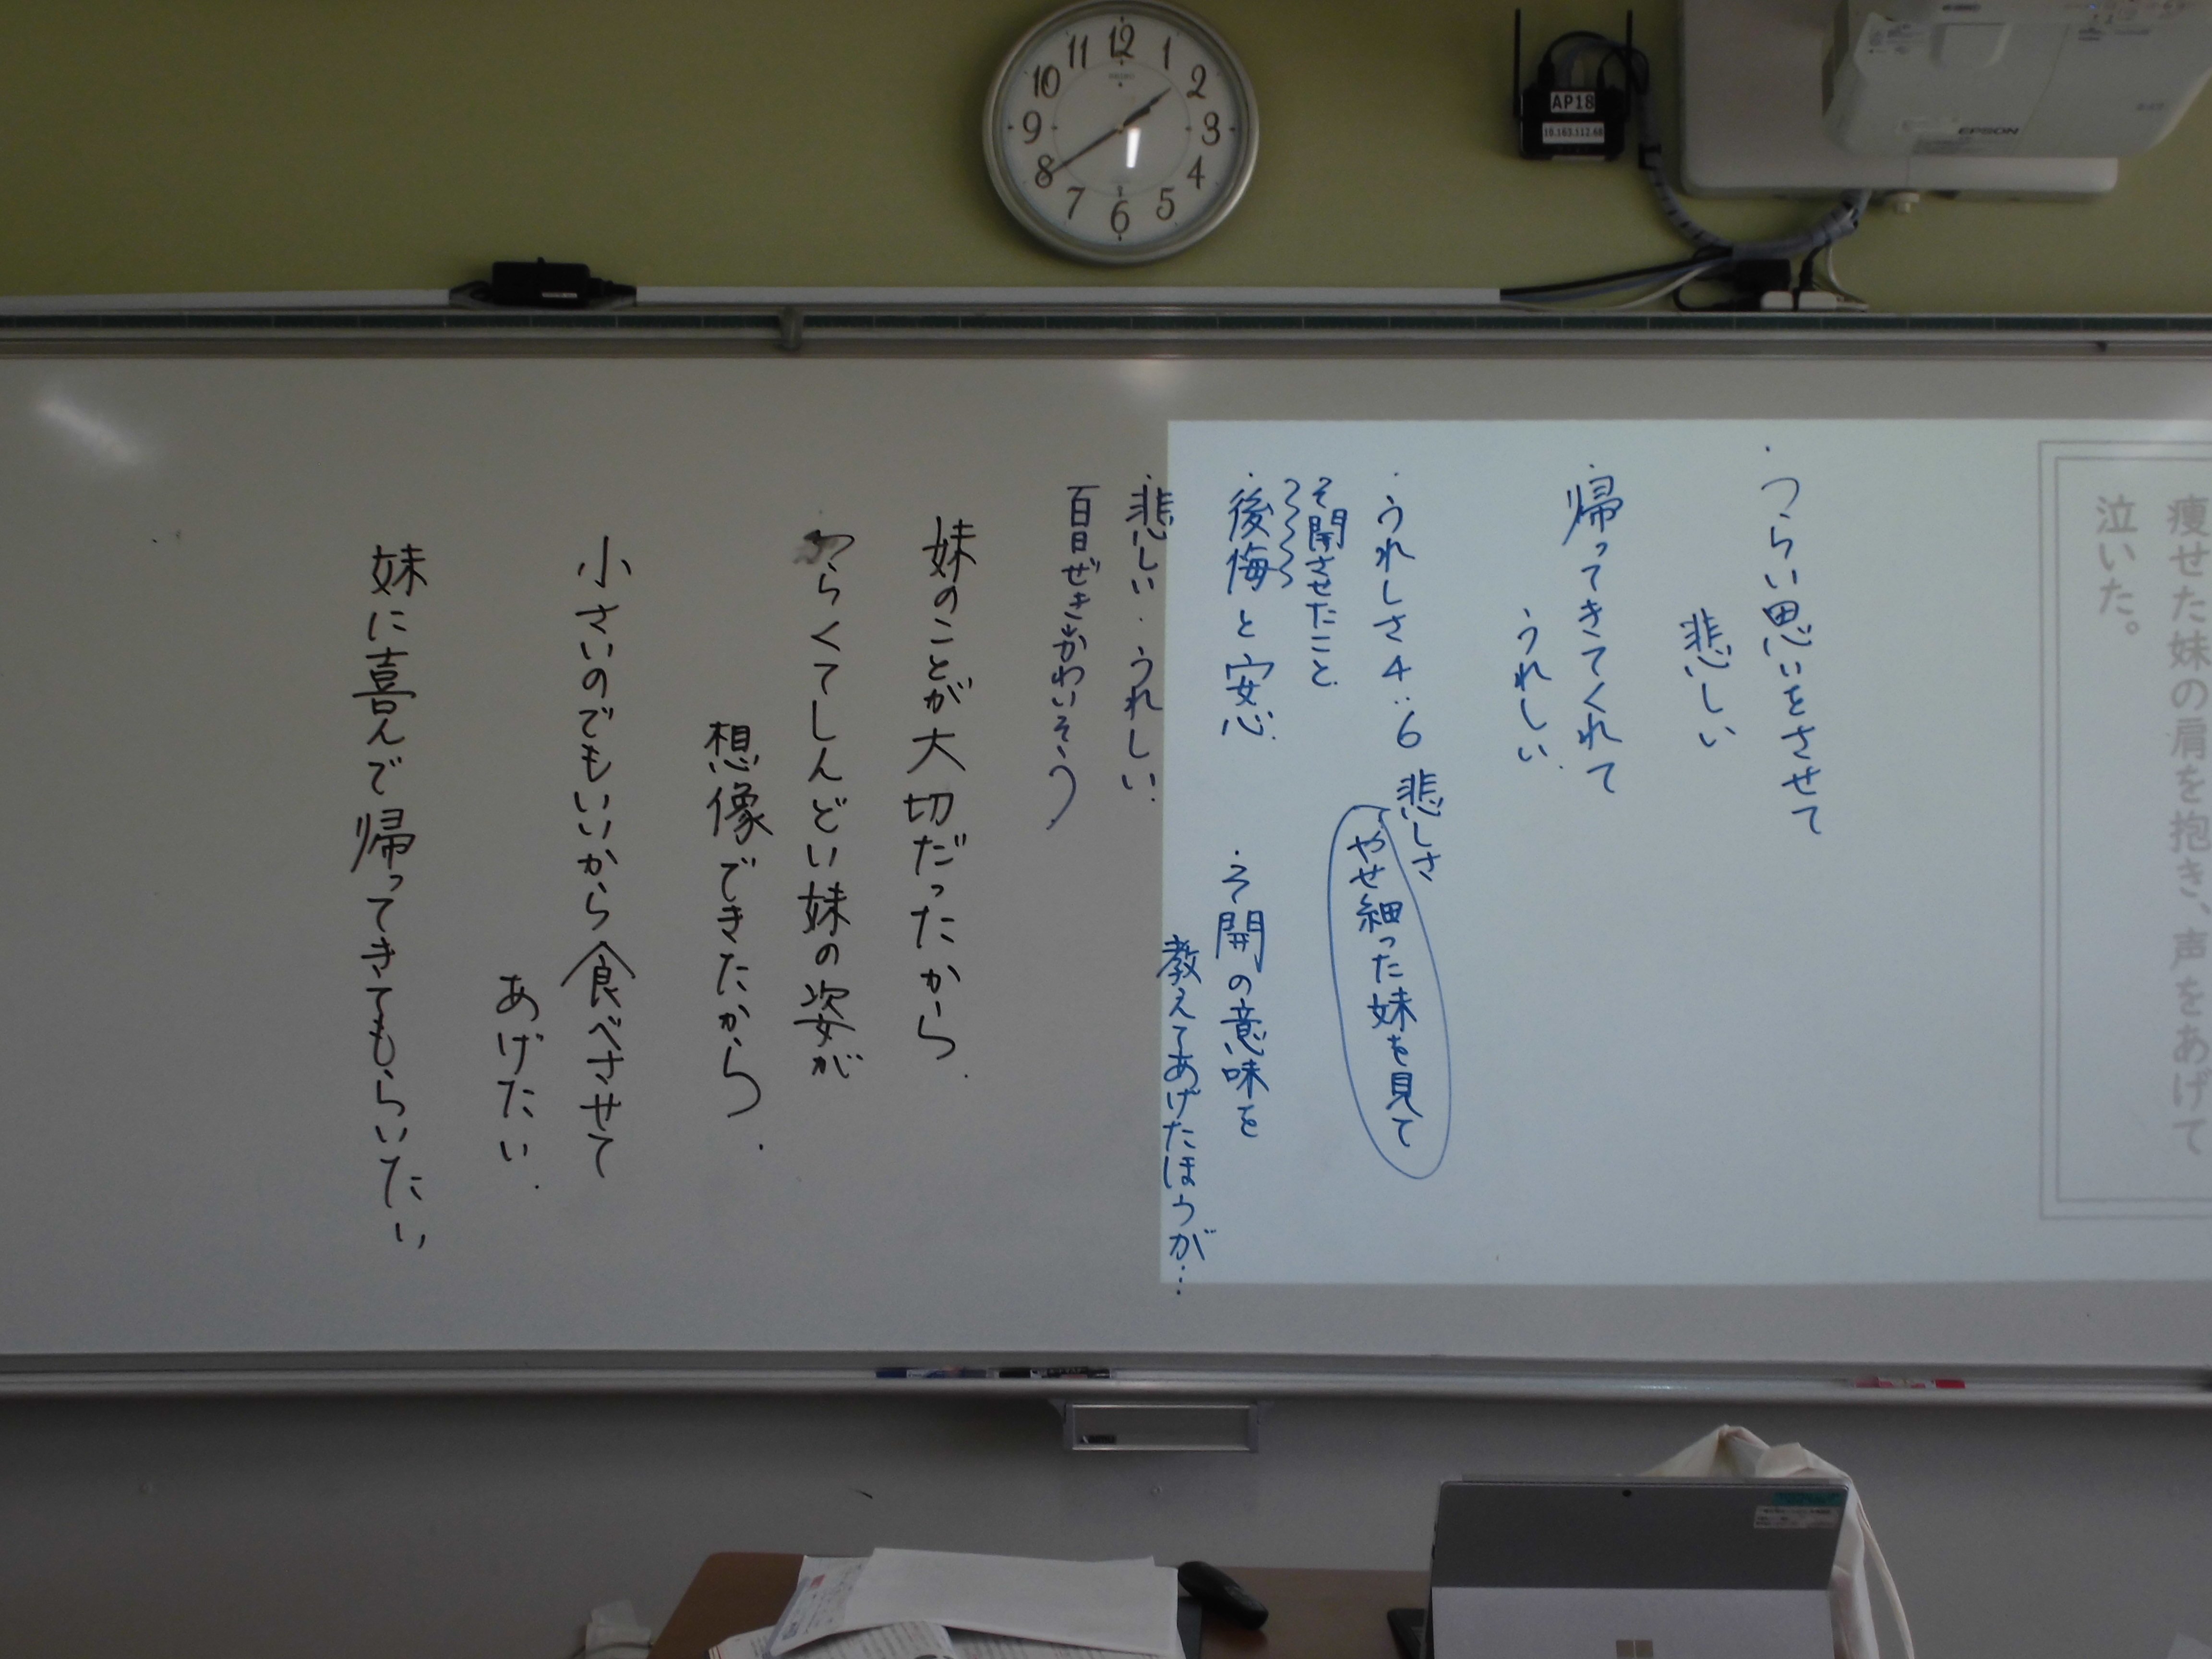 痩せた妹の肩を抱き、声をあげて
泣いた。
・つらい思いをさせて
悲しい
・帰ってきてくれて
うれしい
・うれしさ4:6悲しさ
やせ細った妹を見て
そ開させたこと
・後悔と安心
・そ開の意味を
教えてあげたほうが…
・悲しい・うれしい
百日ぜき→かわいそう
妹のことが大切だったから
つらくてしんどい妹の姿が
想像できたから
小さいのでもいいから食べさせて
あげたい
妹に喜んで帰ってきてもらいたい
12
1
2
3
4
5
6
7
8
9
10
11
SEIKO
AP18
10.163.112.60
EPSON